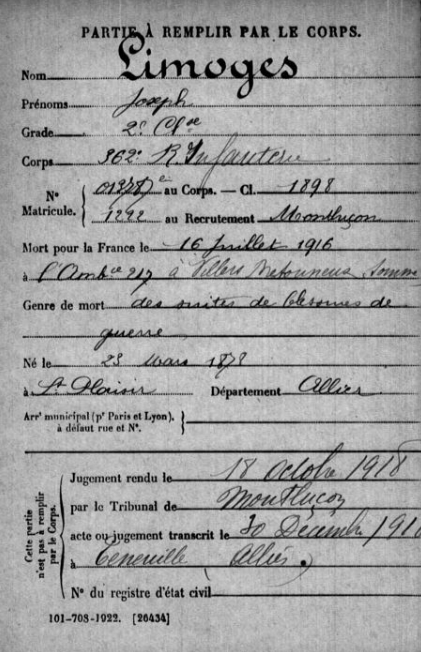 PARTIE À REMPLIR PAR LE CORPS.
Nom Limoges
Prénoms Joseph
Grade 2e Clse
Corps 362e R Infanterie
Nº Matricule. { au Corps. — Cl. 1898
1292 au Recrutement Montluçon
Mort pour la France le 16 Juillet 1916
à l'Ambce 217 à Villers Bretonneux Somme
Genre de mort des suites de blessures de
guerre
Né le 23 Mars 1878
à St Plaisir Département Allier
Arrt municipal (pr Paris et Lyon), à défaut rue et Nº. }
Cette partie n'est pas à remplir par le Corps.
Jugement rendu le 18 octobre 1918
par le Tribunal de Montluçon
acte ou jugement transcrit le 30 Décembre
à Theneuille (Allier)
Nº du registre d'état civil
101-708-1922. [26434]